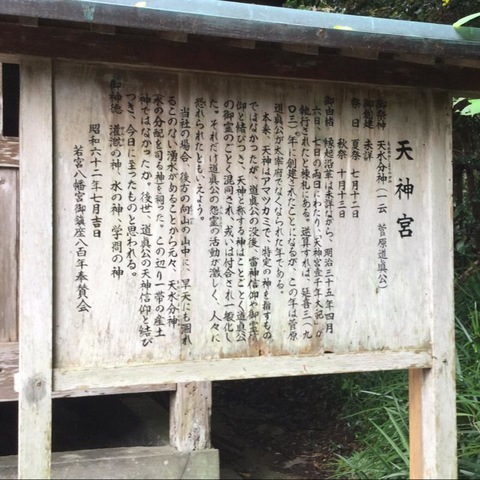 天神宮
御祭神 天水分神(一云 菅原道真公)
御創建 未詳
祭日 夏祭 七月十二日
秋祭 十月十三日
御由緒 縁起沿革は未詳ながら、明治三十五年四月
六日、七日の両日にわたり、天神宮壱千年大記が
執行されたと棟札にある。逆算すれば、延喜三(九
〇三)年に創建されたことになるが、この年は菅原
道真公が太宰府でなくなられた年である。
本来、天神はアマツカミで、特定の神を指すもの
ではなかったが、道真公の没後、雷神信仰や御霊信
仰と結びつき、天神と称する神はことごとく道真公
の御霊のごとく混同され、或いは付合され一般化し
た。それだけ道真公の怨霊の活動が激しく、人々に
恐れられたともいえよう。
当社の場合、後方の向山の山中に、旱天にも涸れ
ることのない湧水があることから元々、天水分神
(水の分配を司る神)を祠った。この辺り一帯の産土
神ではなかったか。後世、道真公の天神信仰と結び
つき、今日に至ったものと思われる。
御神徳 道の神、水の神、学問の神
昭和六十二年七月吉日
若宮八幡宮御鎮座八百年奉賛会